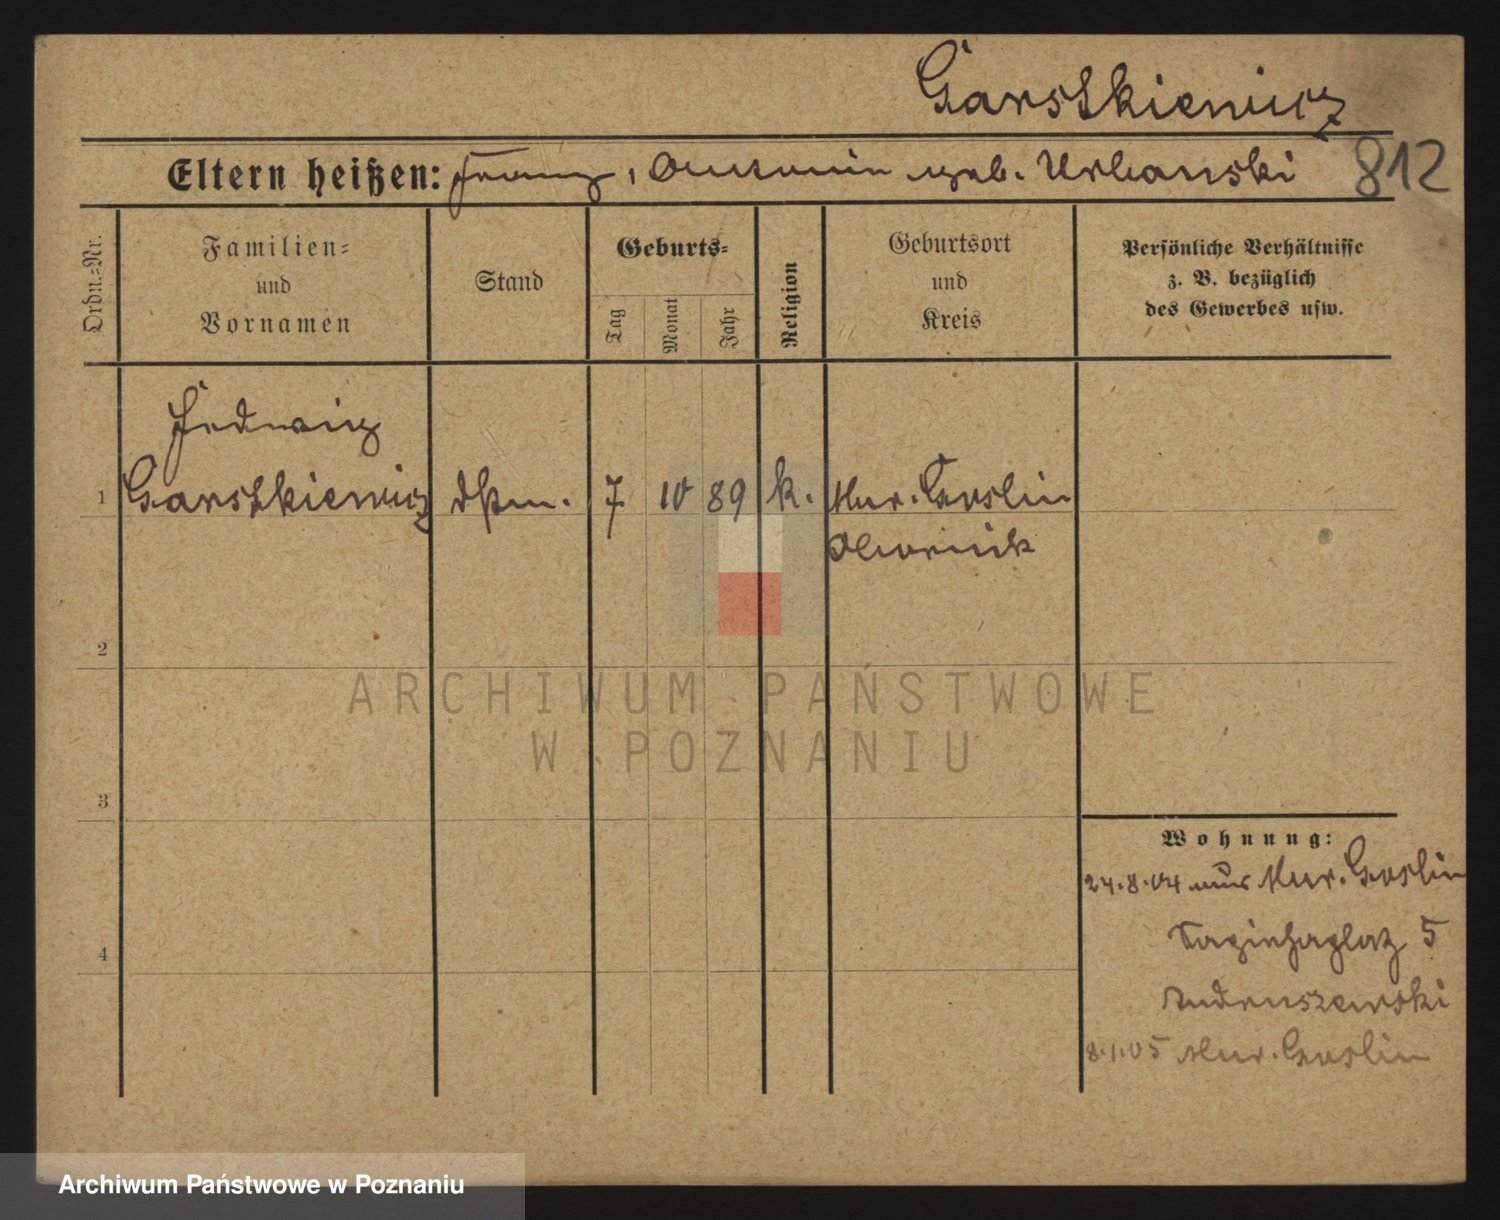 Garstkiewicz
Eltern heißen: Franz, Antonin geb. Urbanski 812
Ordn.=Nr.
Familien=
und
Vornamen
Stand
Geburts=
Tag
Monat
Jahr
Religion
Geburtsort
und
Kreis
Persönliche Verhältnisse
z. B. bezüglich
des Gewerbes usw.
Hedwig
1 Garstkiewicz 7 10 89 k. Mur. Goslin
Obornik
2
3
4
Wohnung:
24.8.04 aus Mur. Goslin
Sapiehaplatz 5
Andruszewski
8.1.05 Mur. Goslin
ARCHIWUM PAŃSTWOWE
W POZNANIU
Archiwum Państwowe w Poznaniu